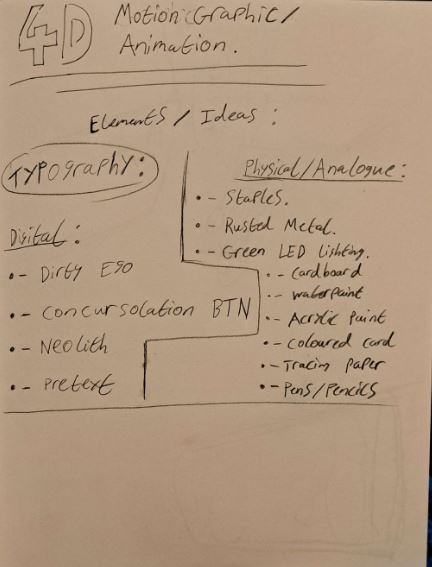 4D Motion Graphic/
Animation.
Elements / Ideas :
Typography:
Digital :
•- Dirty Ego
•- Concursolation BTN
•- Neolith
•- Pretext
Physical/Analogue:
•- Staples.
•- Rusted Metal.
•- Green LED Lighting.
•- Cardboard
•- waterpaint
•- Acrylic Paint
•- coloured card
•- Tracing paper
•- Pens/Pencils